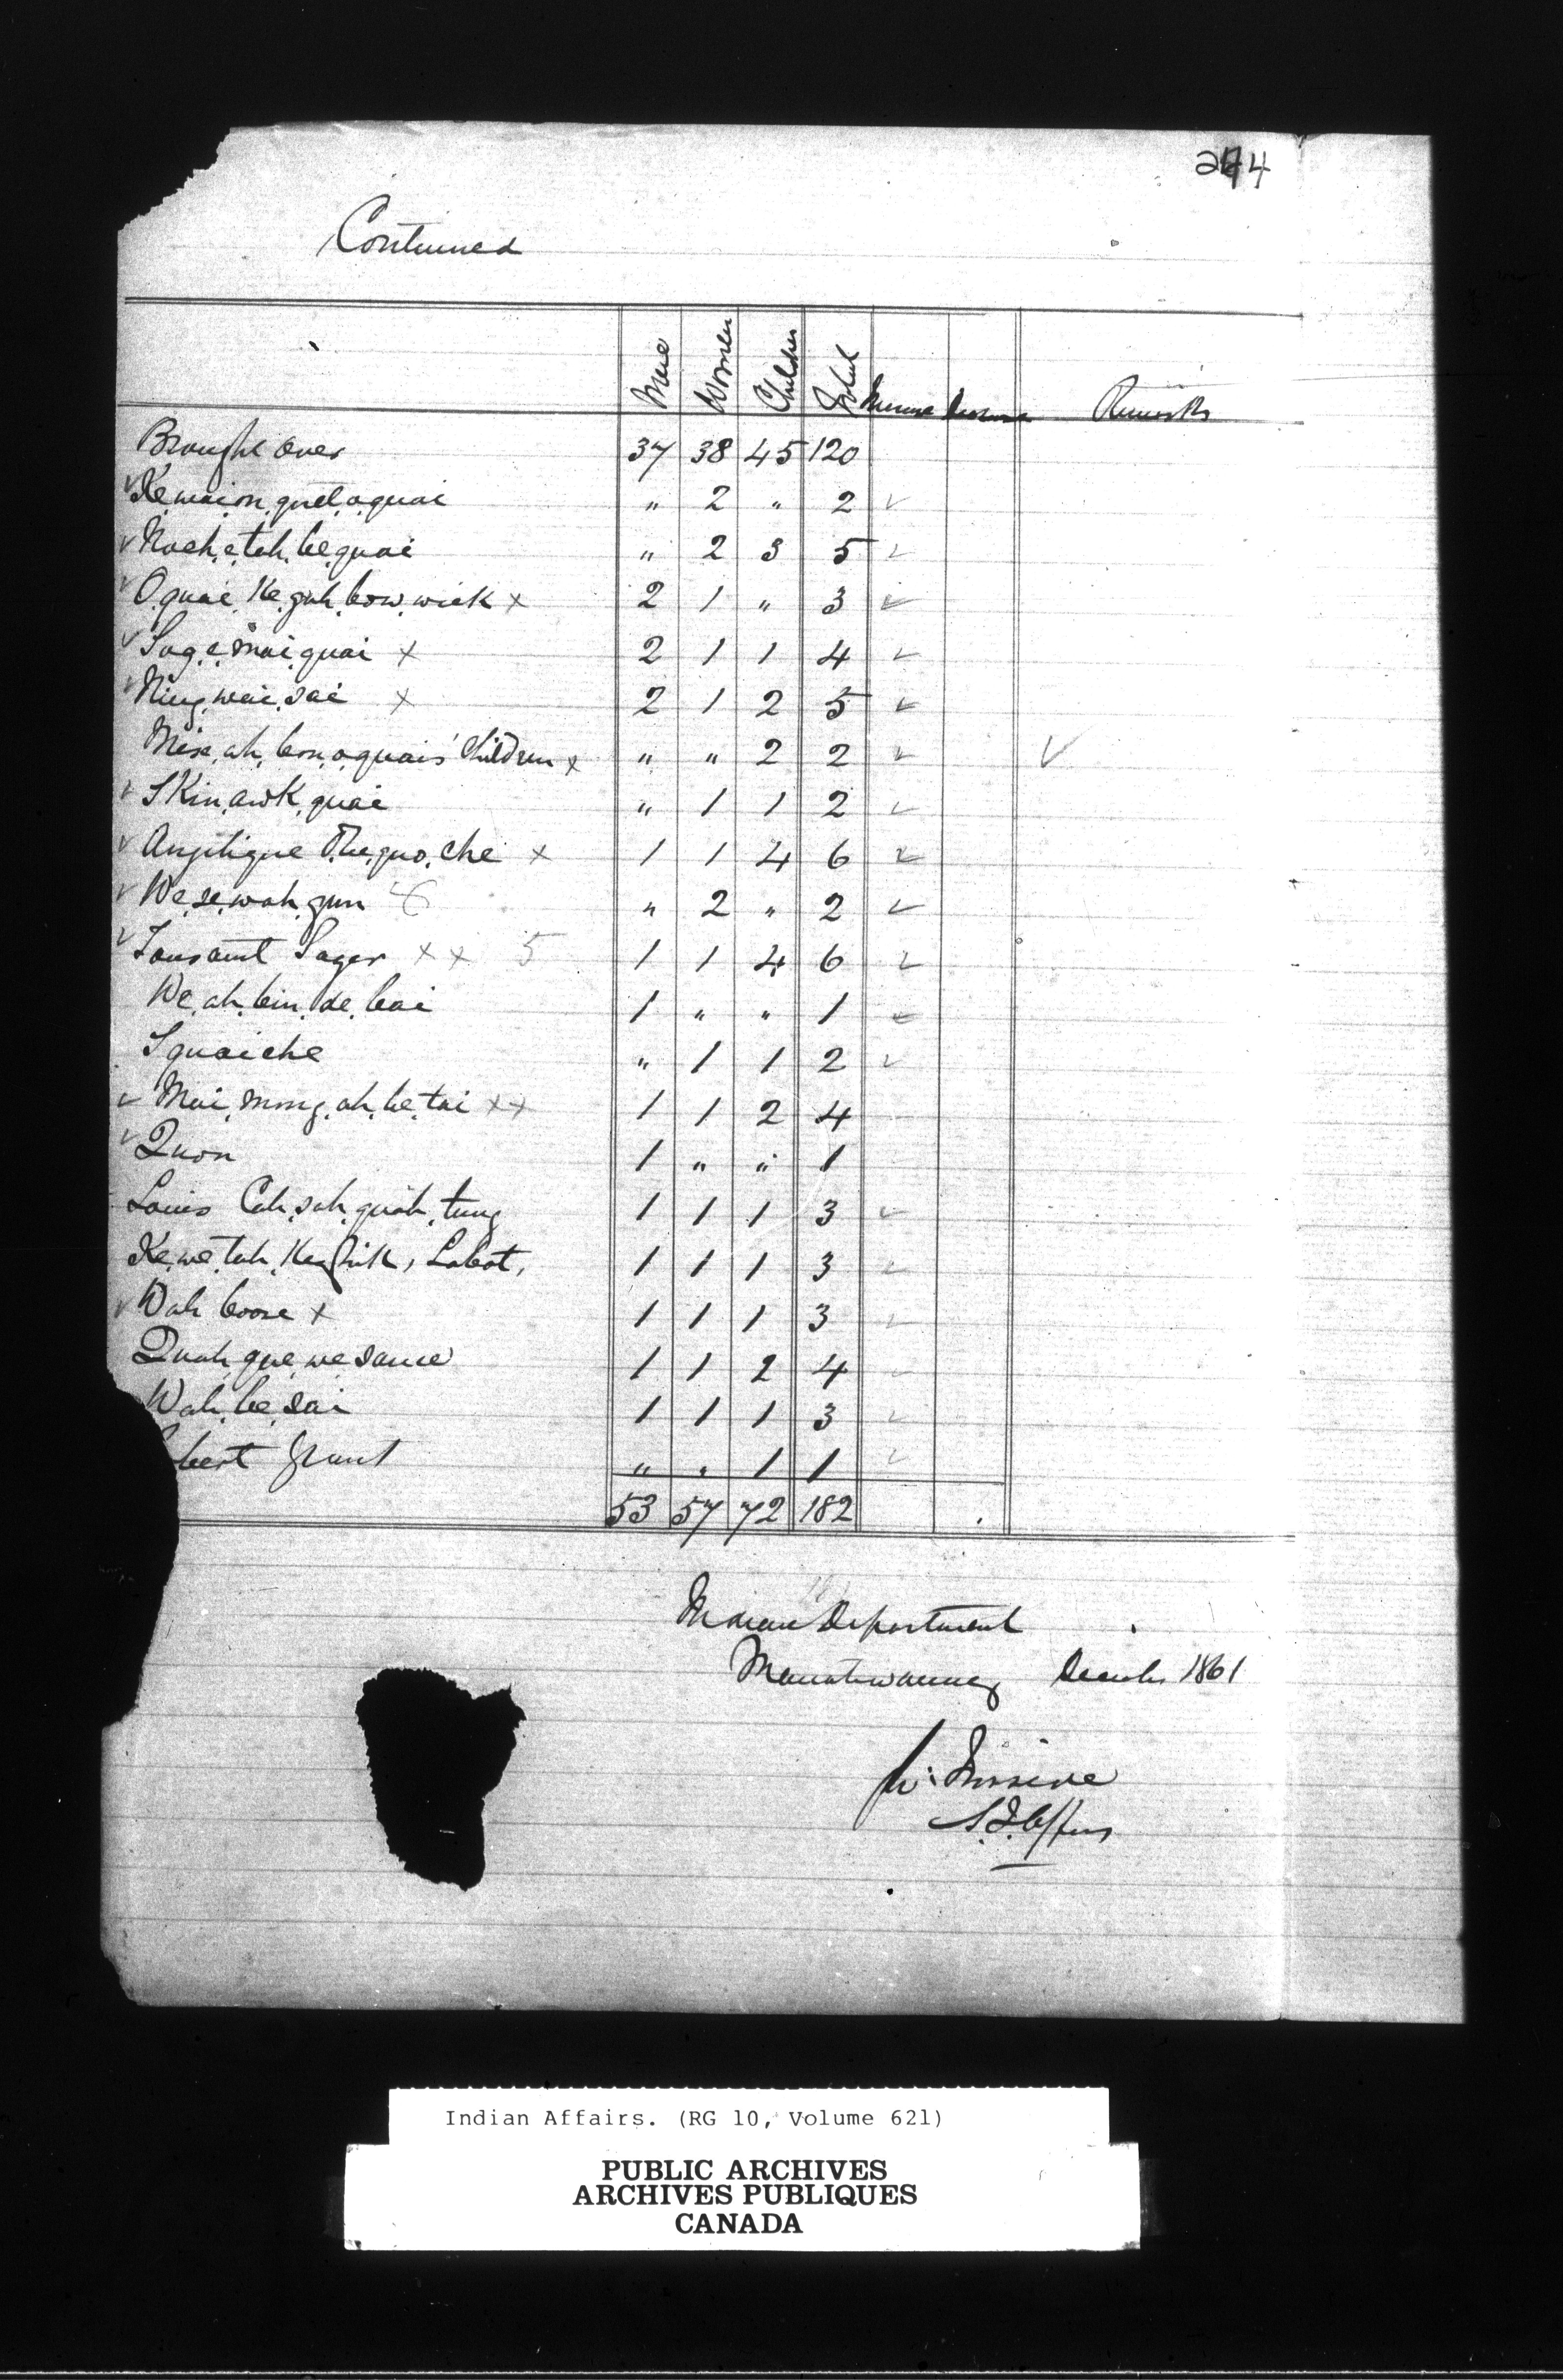 274
Continued
Men Women Children Total Increase Decrease Remarks
Brought over 37 38 45 120
Ke.wai.on.quet.o.quai " 2 " 2
Noch.e.tah.be.quai " 2 3 5
O.quai.Ke.gah.bow.wick x 2 1 " 3
Sag.e.mai.quai x 2 1 1 4
Ning.wai.sai x 2 1 2 5
Mise.ah.bon.o.quais' Children x " " 2 2
SKin.awk.quai " 1 1 2
Angelique The.quo.che x 1 1 4 6
We.se.wah.gun 6 " 2 " 2
Tousaint Sager x x 5 1 1 4 6
We.ah.bin.de.bai 1 " " 1
Squaiche " 1 1 2
Mai.mong.ah.be.tai x x 1 1 2 4
Quon 1 " " 1
Louis Cah.sah.quah.tung 1 1 1 3
Ke.we.tah.Ke.zhik, Labot, 1 1 1 3
Wah boose x 1 1 1 3
Quah.que.we.sance 1 1 2 4
Wah.be.sai 1 1 1 3
bert Grant " " 1 1
53 57 72 182
Indian Department
Manitowaning December 1861
S.I. Affairs
Indian Affairs. (RG 10, Volume 621)
PUBLIC ARCHIVES
ARCHIVES PUBLIQUES
CANADA